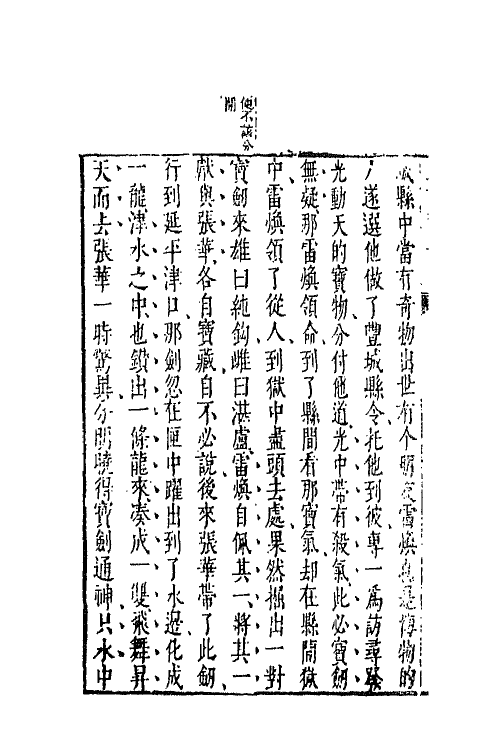 便不該分
開
城縣中當有奇物出世有个朋友雷煥是博物的
人遂選他做了豐城縣令托他到彼專一爲訪尋
光動天的寶物分付他道光中帶有殺氣此必寶劍
無疑那雷煥領命到了縣間看那寶氣却在縣間獄
中雷煥領了從人到獄中盡頭去處果然掘出一對
寶劍來雄曰純鈎雌曰湛盧雷煥自佩其一將其一
獻與張華各自寶藏自不必說後來張華帶了此劍
行到延平津口那劍忽在匣中躍出到了水邊化成
一龍津水之中也鑽出一條龍來凑成一雙飛舞昇
天而去張華一時驚異分明曉得寶劍通神只水中